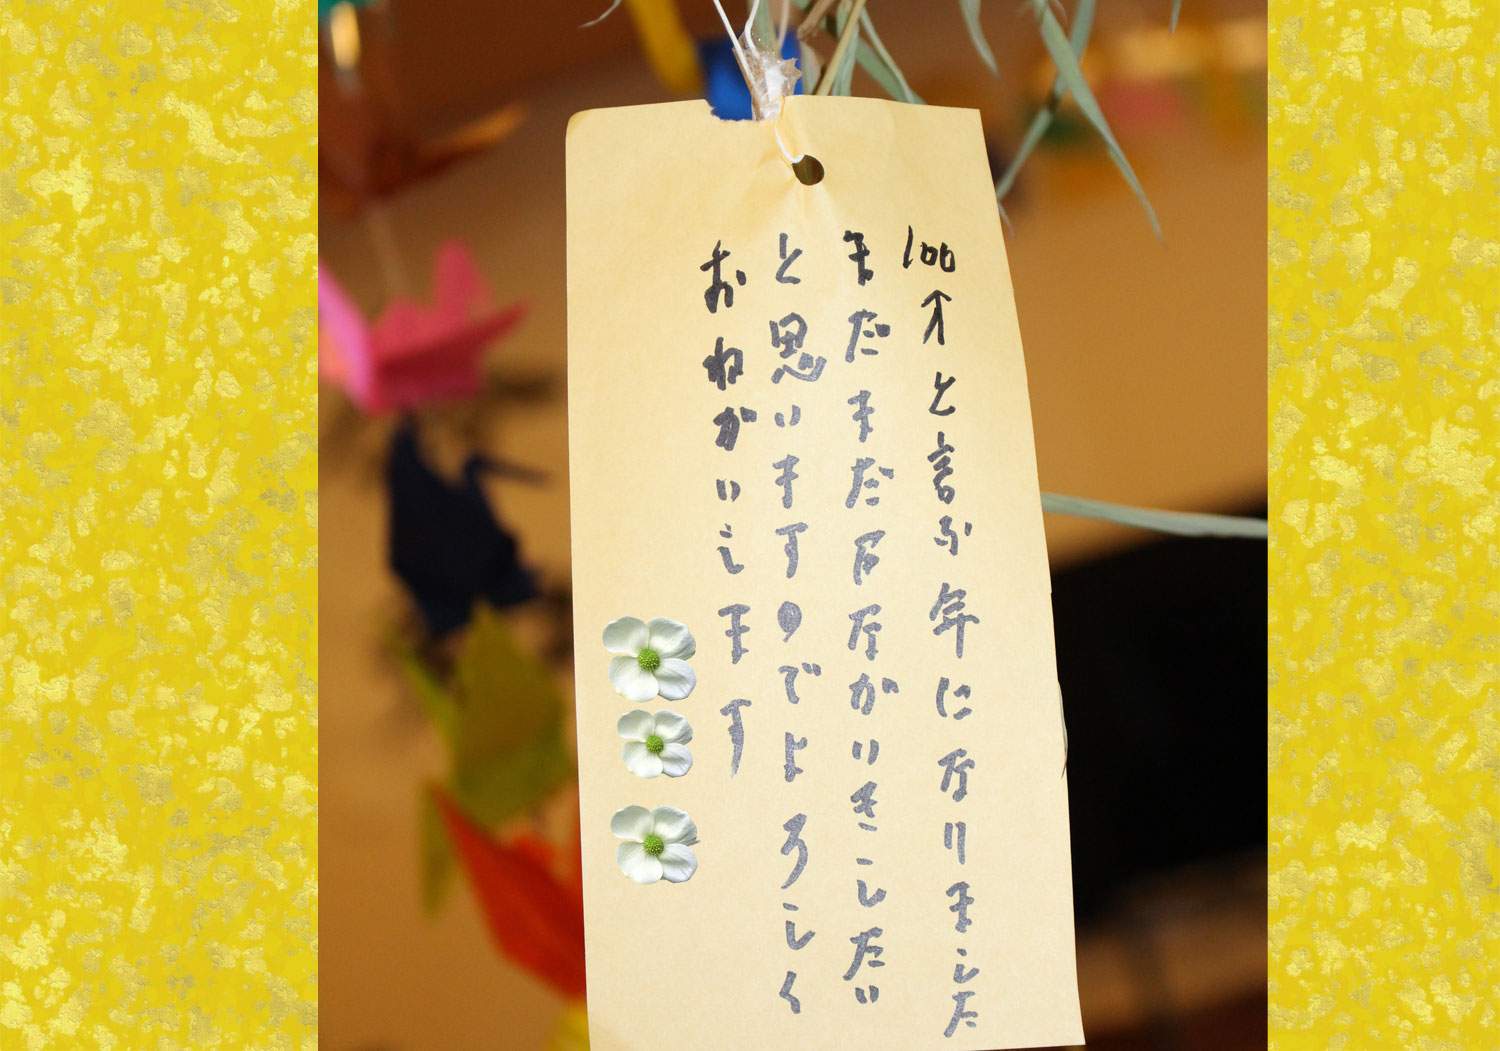 100才と言ふ年になりました
まだまだながいきしたい
と思いますのでよろしく
おねがいします